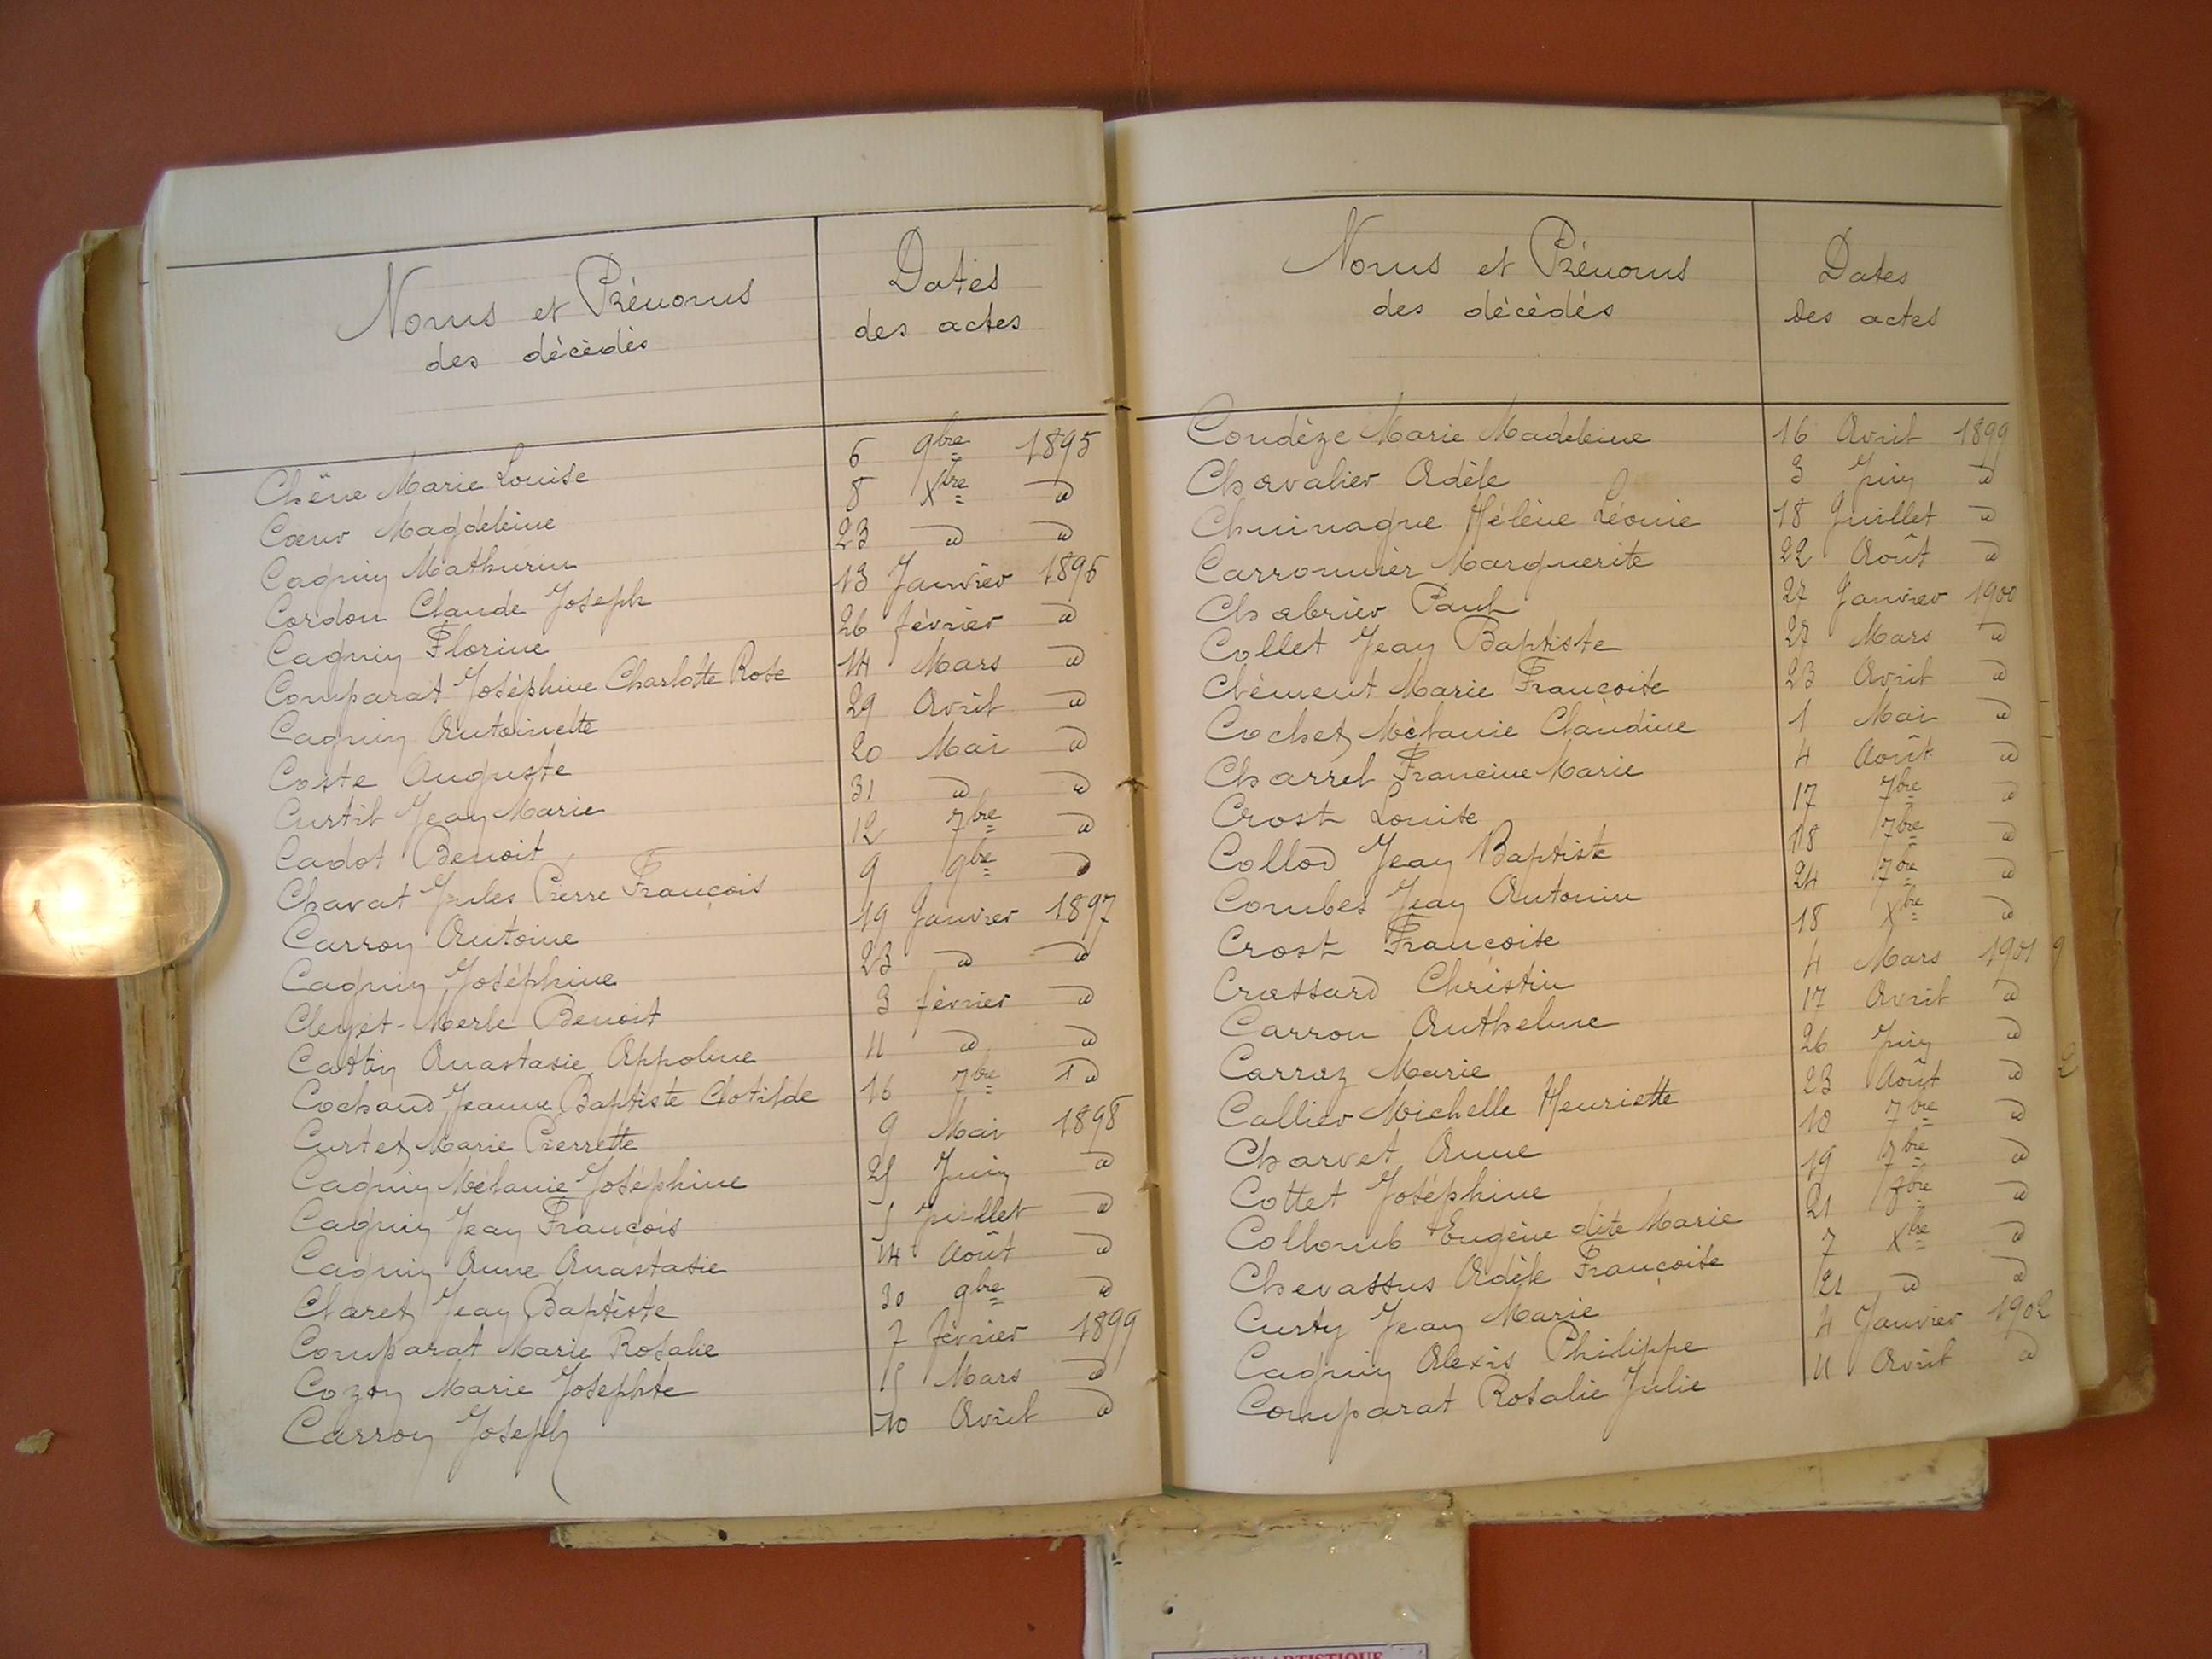 Noms et Prénoms
des décédés
Dates
des actes
Chêne Marie Louise 6 9bre 1895
Cœur Magdeleine 8 Xbre d
Cagnin Mathurin 23 d d
Cordon Claude Joseph 13 Janvier 1896
Cagnin Florine 26 février d
Comparat Joséphine Charlotte Rose 14 Mars d
Cagnin Antoinette 29 Avril d
Coste Auguste 20 Mai d
Curtil Jean Marie 31 d d
Cadot Benoit 12 7bre d
Chavat Jules Pierre François 9 9bre d
Carron Antoine 19 Janvier 1897
Cagnin Joséphine 23 d d
Cleyet-Merle Benoit 3 février d
Cattin Anastasie Appoline 11 d d
Cochaud Jeanne Baptiste Clotilde 16 7bre d
Curtet Marie Pierrette 9 Mai 1898
Cagnin Mélanie Joséphine 25 Juin d
Cagnin Jean François 5 Juillet d
Cagnin Anne Anastasie 14 Août d
Claret Jean Baptiste 30 9bre d
Comparat Marie Rosalie 7 février 1899
Cozon Marie Josephte 15 Mars d
Carron Joseph 10 Avril d
Noms et Prénoms
des décédés
Dates
des actes
Condèze Marie Madeleine 16 Avril 1899
Chavalier Adèle 3 Juin d
Chuinague Hélène Léonie 18 Juillet d
Carronnier Marguerite 22 Août d
Chabrier Paul 27 Janvier 1900
Collet Jean Baptiste 27 Mars d
Clément Marie Françoise 23 Avril d
Cochet Mélanie Claudine 1 Mai d
Charrel Francine Marie 4 Août d
Crost Louise 17 7bre d
Collod Jean Baptiste 18 7bre d
Combes Jean Antonin 24 7bre d
Crost Françoise 18 Xbre d
Crassard Christin 4 Mars 1901
Carron Anthelme 17 Avril d
Carraz Marie 26 Juin d
Callier Michelle Henriette 23 Août d
Charvet Anne 10 7bre d
Cottet Joséphine 19 7bre d
Collomb Eugène dite Marie 21 8bre d
Chevassus Adèle Françoise 7 Xbre d
Curty Jean Marie 21 d d
Cagnin Alexis Philippe 4 Janvier 1902
Comparat Rosalie Julie 11 Avril d